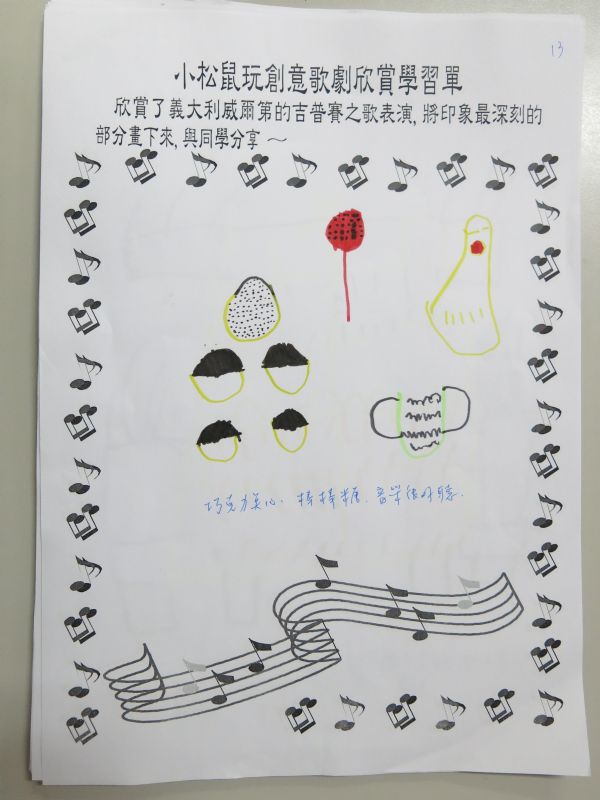 13
小松鼠玩創意歌劇欣賞學習單
欣賞了義大利威爾第的吉普賽之歌表演, 將印象最深刻的
部分畫下來, 與同學分享～
巧克力夾心、棒棒糖、音樂很好聽.